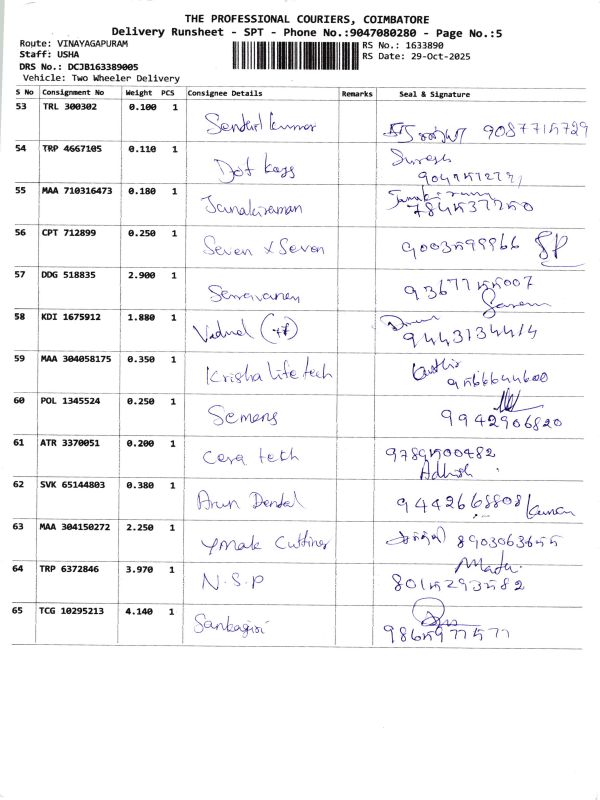 THE PROFESSIONAL COURIERS, COIMBATORE
Delivery Runsheet - SPT - Phone No.:9047080280 - Page No.:5
Route: VINAYAGAPURAM
Staff: USHA
DRS No.: DCJB163389005
Vehicle: Two Wheeler Delivery
RS No.: 1633890
RS Date: 29-Oct-2025
S No Consignment No Weight PCS Consignee Details Remarks Seal & Signature
53 TRL 300302 0.100 1 Senduil kumar 9087715729
54 TRP 4667105 0.110 1 Dot kags Suresh
55 MAA 710316473 0.180 1 Janakiraman 784537250
56 CPT 712899 0.250 1 Seven x Seven 9003599966 SP
57 DDG 518835 2.900 1 9367755007
58 KDI 1675912 1.880 1 9443134414
59 MAA 304058175 0.350 1 Krisha life tech 9566644600
60 POL 1345524 0.250 1 Semens 9942906820
61 ATR 3370051 0.200 1 Cera tech 9789500482
62 SVK 65144803 0.380 1 Arun Dental 9442668808
63 MAA 304150272 2.250 1 8903063655
64 TRP 6372846 3.970 1 N.S.P Madu. 8015293582
65 TCG 10295213 4.140 1 Sankagiri 9865977577